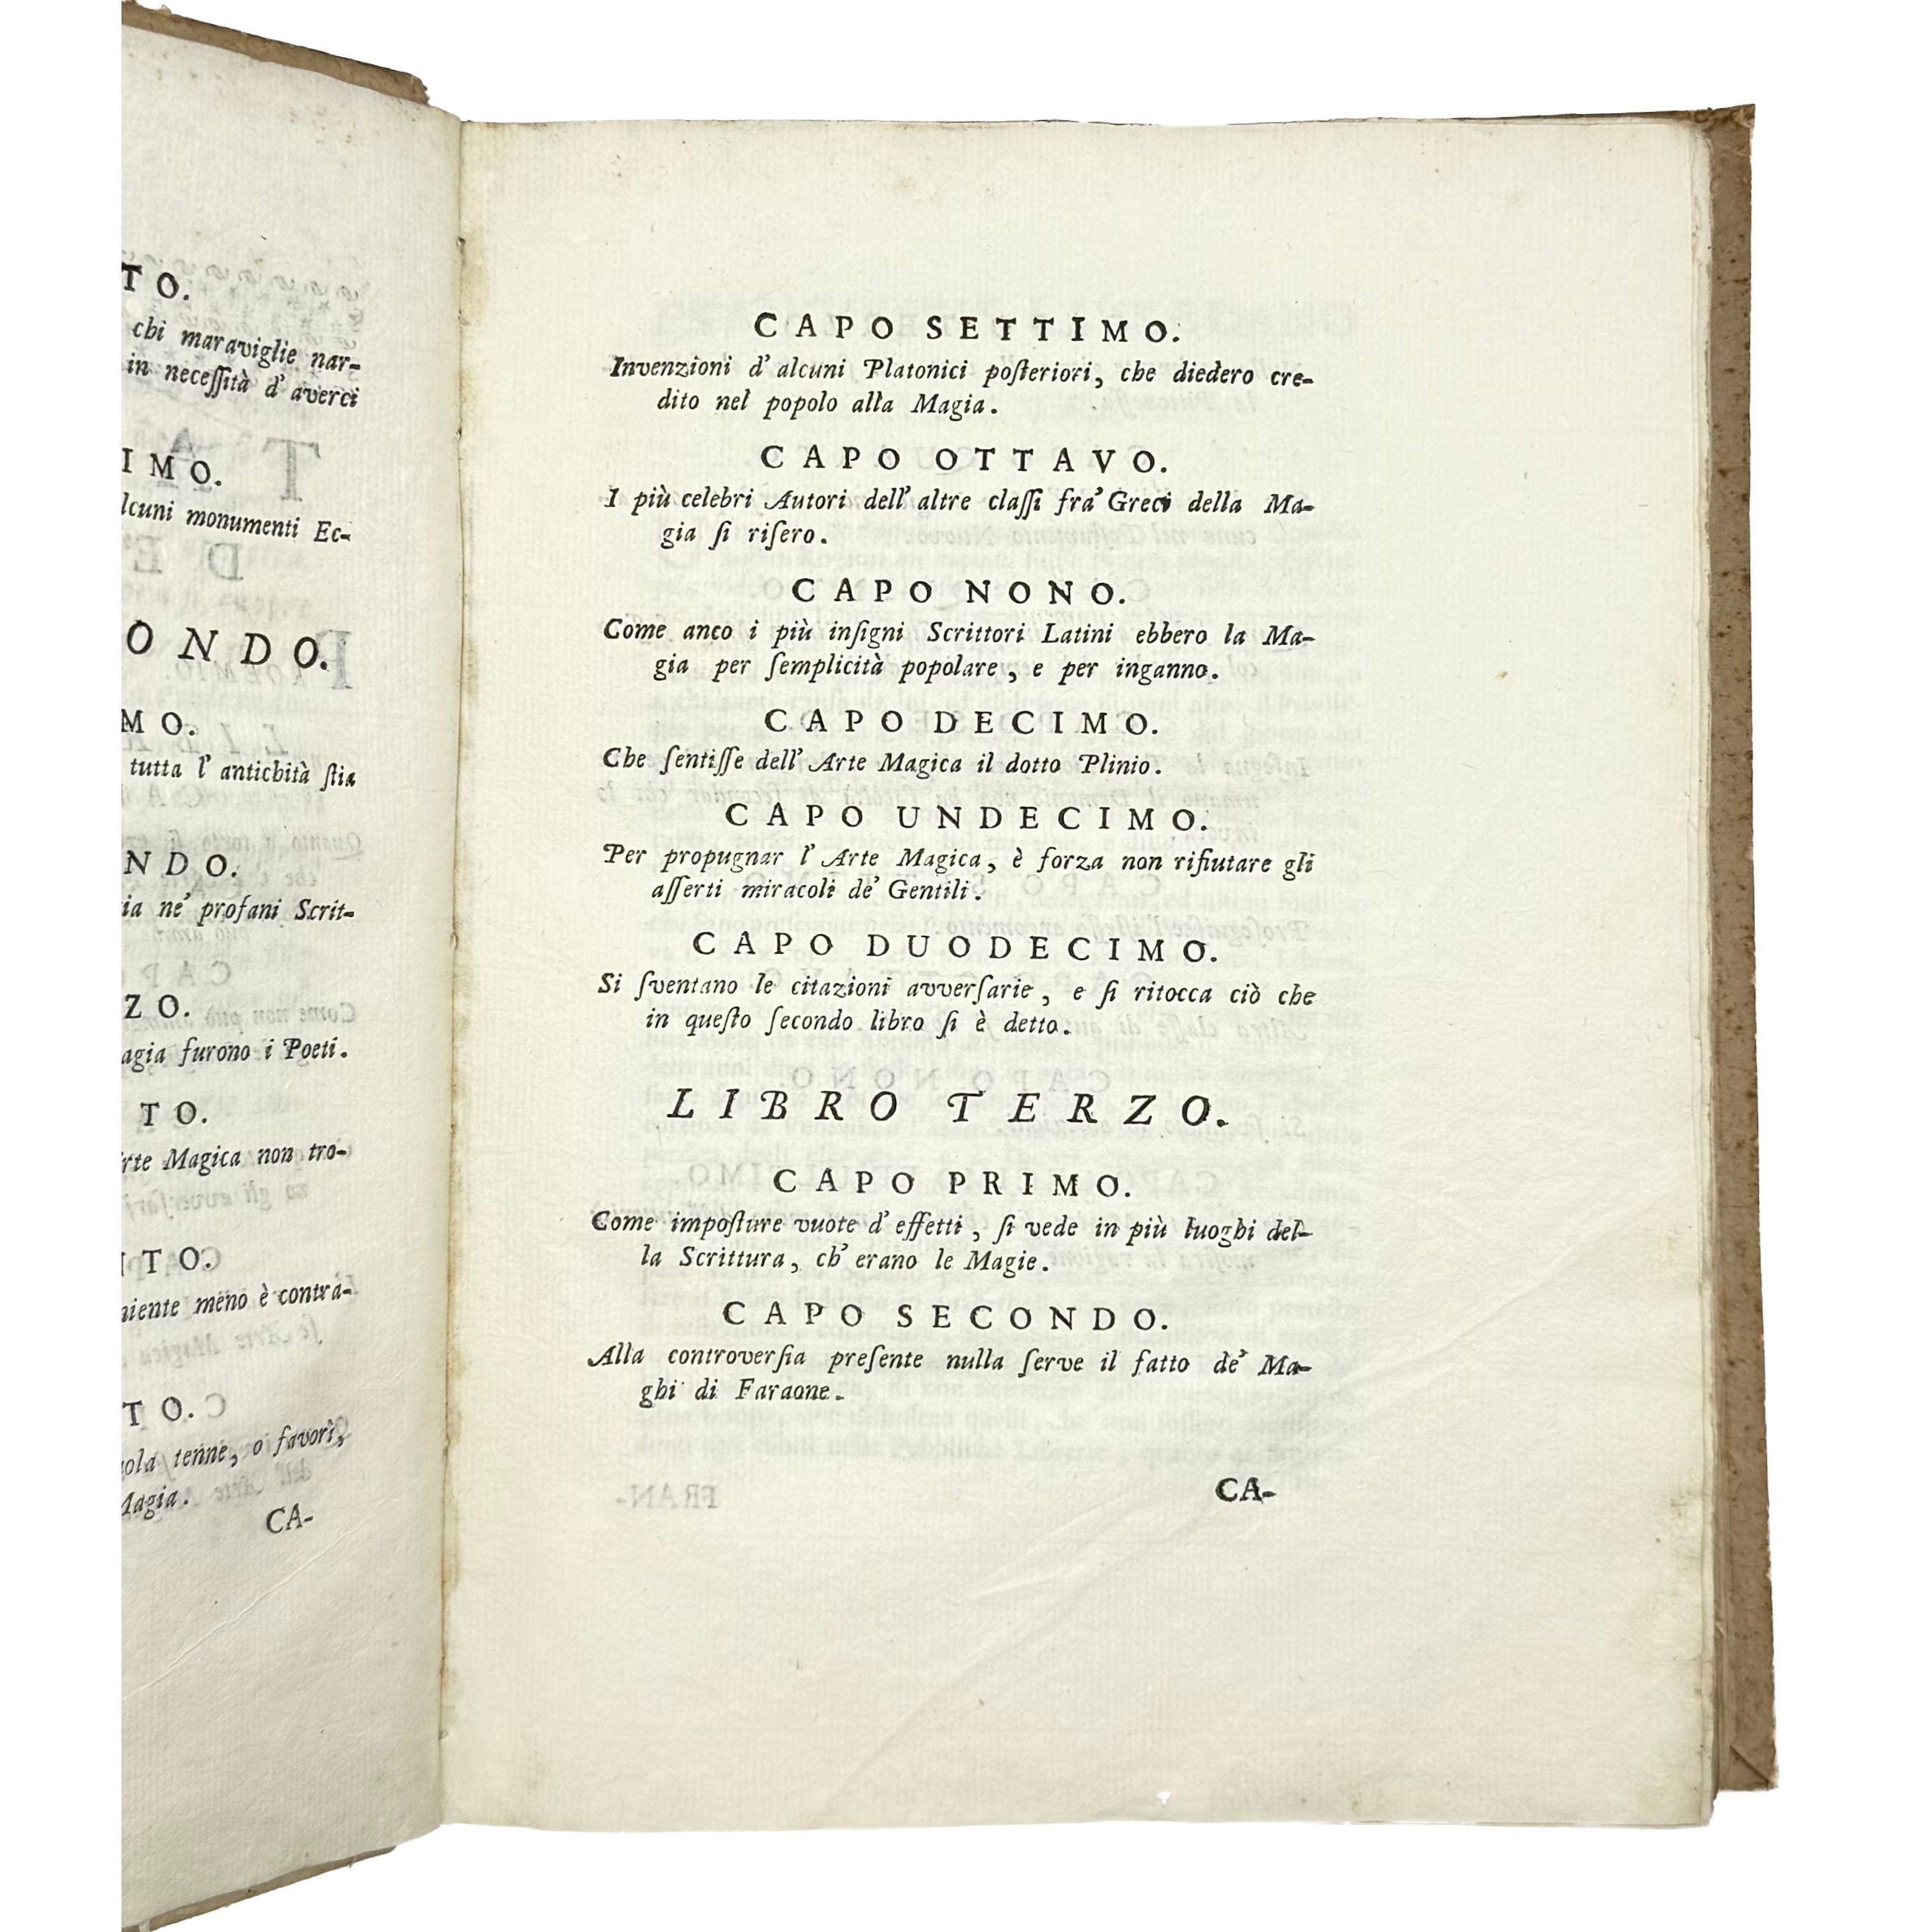 TO.
chi maraviglie nar-
in necessità d' averci
IMO.
lcuni monumenti Ec-
ONDO.
MO.
tutta l' antichità ſtia
NDO.
ia ne' profani Scrit-
ZO.
agia furono i Poeti.
TO.
rte Magica non tro-
TO.
niente meno è contra-
TO.
ola tenne, o favori,
Magia.
CA-
CAPO SETTIMO.
Invenzioni d' alcuni Platonici poſteriori, che diedero cre-
dito nel popolo alla Magia.
CAPO OTTAVO.
I più celebri Autori dell' altre claſſi fra' Greci della Ma-
gia ſi riſero.
CAPO NONO.
Come anco i più inſigni Scrittori Latini ebbero la Ma-
gia per ſemplicità popolare, e per inganno.
CAPO DECIMO.
Che ſentiſſe dell' Arte Magica il dotto Plinio.
CAPO UNDECIMO.
Per propugnar l' Arte Magica, è forza non rifiutare gli
aſſerti miracoli de' Gentili.
CAPO DUODECIMO.
Si ſventano le citazioni avverſarie, e ſi ritocca ciò che
in queſto ſecondo libro ſi è detto.
LIBRO TERZO.
CAPO PRIMO.
Come impoſture vuote d' effetti, ſi vede in più luoghi del-
la Scrittura, ch' erano le Magie.
CAPO SECONDO.
Alla controverſia preſente nulla ſerve il fatto de' Ma-
ghi di Faraone.
CA-